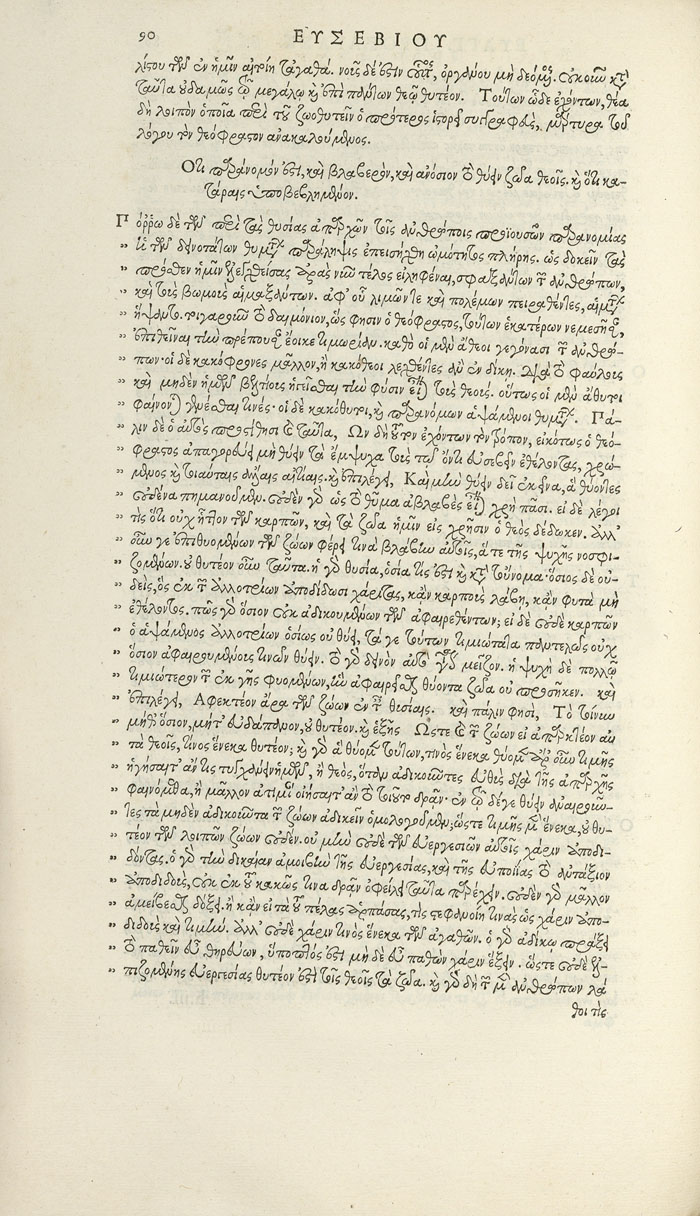 90 ΕΥΣΕΒΙΟΥ
λίστου τῶν ἐν ἡμῖν αἰτεῖν τἀγαθά. νοῦς δέ ἐστιν οὗτος, ὀργάνου μὴ δεόμενος. οὐκοῦν κατὰ
ταῦτα οὐδαμῶς τῷ μεγάλῳ καὶ ἐπὶ πάντων θεῷ θυτέον. Τούτων ὧδε ἐχόντων, θέα
δὴ λοιπὸν ὁποῖα περὶ τοῦ ζωοθυτεῖν ὁ πρότερος ἱστορεῖ συγγραφεὺς, μάρτυρα τοῦ
λόγου τὸν θεόφραστον ἀνακαλούμενος.
Ὅτι παράνομόν ἐστι, καὶ βλαβερὸν, καὶ ἀνόσιον τὸ θύειν ζῶα θεοῖς. καὶ ὅτι κα-
τάραις ὑποβεβλημένον.
Πόρρω δὲ τῶν περὶ τὰς θυσίας ἀπαρχῶν τοῖς ἀνθρώποις προϊουσῶν παρανομίας
„ ἡ τῶν δεινοτάτων θυμάτων παράληψις ἐπεισήχθη ὠμότητος πλήρης. ὡς δοκεῖν τὰς
„ πρόσθεν ἡμῖν λεχθείσας ἀρὰς νῦν τέλος εἰληφέναι, σφαξάντων τῶν ἀνθρώπων,
„ καὶ τοὺς βωμοὺς αἱμαξάντων. ἀφ' οὗ λιμῶν τε καὶ πολέμων πειραθέντες, αἱμάτων
„ ἥψαντο. τοιγαροῦν τὸ δαιμόνιον, ὥς φησιν ὁ θεόφραστος, τούτων ἑκατέρων νεμεσῆσαν,
„ ἐπιθεῖναι τὴν πρέπουσαν ἔοικε τιμωρίαν. καθὸ οἱ μὲν ἄθεοι γεγόνασι τῶν ἀνθρώ-
„ πων· οἱ δὲ κακόφρονες μᾶλλον, ἢ κακόθεοι λεχθέντες ἂν ἐν δίκῃ. διὰ τὸ φαύλους
„ καὶ μηδὲν ἡμῶν βελτίους ἡγεῖσθαι τὴν φύσιν εἶναι τοὺς θεούς. οὕτως οἱ μὲν ἄθυτοι
„ φαίνονται γενέσθαι τινές· οἱ δὲ κακόθυτοι, καὶ παρανόμων ἁψάμενοι θυμάτων. Πά-
„ λιν δὲ ὁ αὐτὸς προστίθησι καὶ ταῦτα, Ὧν δὴ τοῦτον ἐχόντων τὸν τρόπον, εἰκότως ὁ θεό-
„ φραστος ἀπαγορεύει μὴ θύειν τὰ ἔμψυχα τοὺς τῷ ὄντι εὐσεβεῖν ἐθέλοντας, χρώ-
„ μενος καὶ τοιαύταις ἄλλαις αἰτίαις. καὶ ἐπιλέγει, Καὶ μὴν θύειν δεῖ ἐκεῖνα, ἃ θύοντες
„ οὐδένα πημανοῦμεν. οὐδὲν γὰρ ὡς τὸ θῦμα ἀβλαβὲς εἶναι χρὴ πᾶσι. εἰ δὲ λέγοι
„ τὶς ὅτι οὐχ ἧττον τῶν καρπῶν, καὶ τὰ ζῶα ἡμῖν εἰς χρῆσιν ὁ θεὸς δέδωκεν. ἀλλ'
„ οὖν γε ἐπιθυομένων τῶν ζώων φέρει τινὰ βλάβην αὐτοῖς, ἅτε τῆς ψυχῆς νοσφι-
„ ζομένων. οὐ θυτέον οὖν ταῦτα. ἡ γὰρ θυσία, ὁσία τίς ἐστι καὶ κατὰ τοὔνομα· ὅσιος δὲ οὐ-
„ δεὶς, ὃς ἐκ τῶν ἀλλοτρίων ἀποδίδωσι χάριτας, κἂν καρποὺς λάβῃ, κἂν φυτὰ μὴ
„ ἐθέλοντος. πῶς γὰρ ὅσιον οὐκ ἀδικουμένων τῶν ἀφαιρεθέντων; εἰ δὲ οὐδὲ καρπῶν
„ ὁ ἁψάμενος ἀλλοτρίων ὁσίως οὐ θύει, τά γε τούτων τιμιώτατα πολυτελῶς οὐχ
„ ὅσιον ἀφαιρουμένοις τινῶν θύειν. τὸ γὰρ δεινὸν αὐτοῦ μεῖζον. ἡ ψυχὴ δὲ πολλῷ
„ τιμιώτερον τῶν ἐκ γῆς φυομένων, ἣν ἀφαιρεῖσθαι θύοντα ζῶα οὐ προσῆκεν. καὶ
„ ἐπιλέγει, Ἀφεκτέον ἄρα τῶν ζώων ἐν ταῖς θυσίαις. καὶ πάλιν φησὶ, Τὸ τοίνυν
„ μήθ' ὅσιον, μήτ' εὐδάπανον, οὐ θυτέον. καὶ ἑξῆς Ὥστε καὶ τῶν ζώων εἰ ἀπαρκτέον αὐ
„ τὰ θεοῖς, τίνος ἕνεκα θυτέον; καὶ γὰρ ἃ θύομεν τούτων, τινὸς ἕνεκα θύομεν ἆρ' οὖν τιμῆς
„ ἡγήσαιτ' ἄν τις τυγχάνειν ἡμῶν, ἢ θεὸς, ὅταν ἀδικοῦντες εὐθὺς διὰ τῆς ἀπαρχῆς
„ φαινόμεθα, ἢ μᾶλλον ἀτιμίαν οἰήσαιτ' ἂν τὸ τοιοῦτο δρᾶν· ἐν τῷ δέ γε θύειν ἀναιροῦν-
„ τες τὰ μηδὲν ἀδικοῦντα τῶν ζώων ἀδικεῖν ὁμολογοῦμεν; ὥστε τιμῆς μὲν ἕνεκα, οὐ θυ-
„ τέον τῶν λοιπῶν ζώων οὐδέν. οὐ μὴν οὐδὲ τῶν εὐεργεσιῶν αὐτοῖς χάριν ἀποδι-
„ δόντας. ὁ γὰρ τὴν δικαίαν ἀμοιβὴν τῆς εὐεργεσίας, καὶ τῆς εὐποιίας τὸ ἀντάξιον
„ ἀποδιδοὺς, οὐκ ἐκ τοῦ κακῶς τινα δρᾶν ὀφείλει ταῦτα παρέχειν. οὐδὲν γὰρ μᾶλλον
„ ἀμείβεσθαι δόξει. ἢ κἂν εἰ τὰ τοῦ πέλας ἁρπάσας, τὶς στεφανοίη τινὰς ὡς χάριν ἀπο-
„ διδοὺς καὶ τιμήν. ἀλλ' οὐδὲ χάριν τινὸς ἕνεκα τῶν ἀγαθῶν. ὁ γὰρ ἀδίκῳ πράξει
„ τὸ παθεῖν εὖ θηρεύων, ὕποπτός ἐστι μὴ δὲ εὖ παθὼν χάριν ἕξειν. ὥστε οὐδὲ ἐλ-
„ πιζομένης εὐεργεσίας θυτέον ἐστὶ τοῖς θεοῖς τὰ ζῶα. καὶ γὰρ δὴ τῶν μὲν ἀνθρώπων λά
θοι τὶς